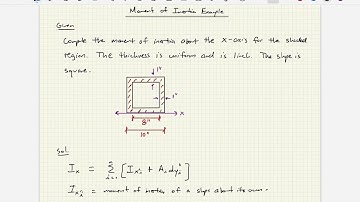 Moment of Inertia Example
Given
Compute the moment of inertia about the x-axis for the shaded
region. The thickness is uniform and is 1 inch. The shape is
square.
1"
1"
x
8"
10"
Sol
Ix = Σ [Ixi + Ai dyi²]
i=1
Ixi = moment of inertia of a shape about its own